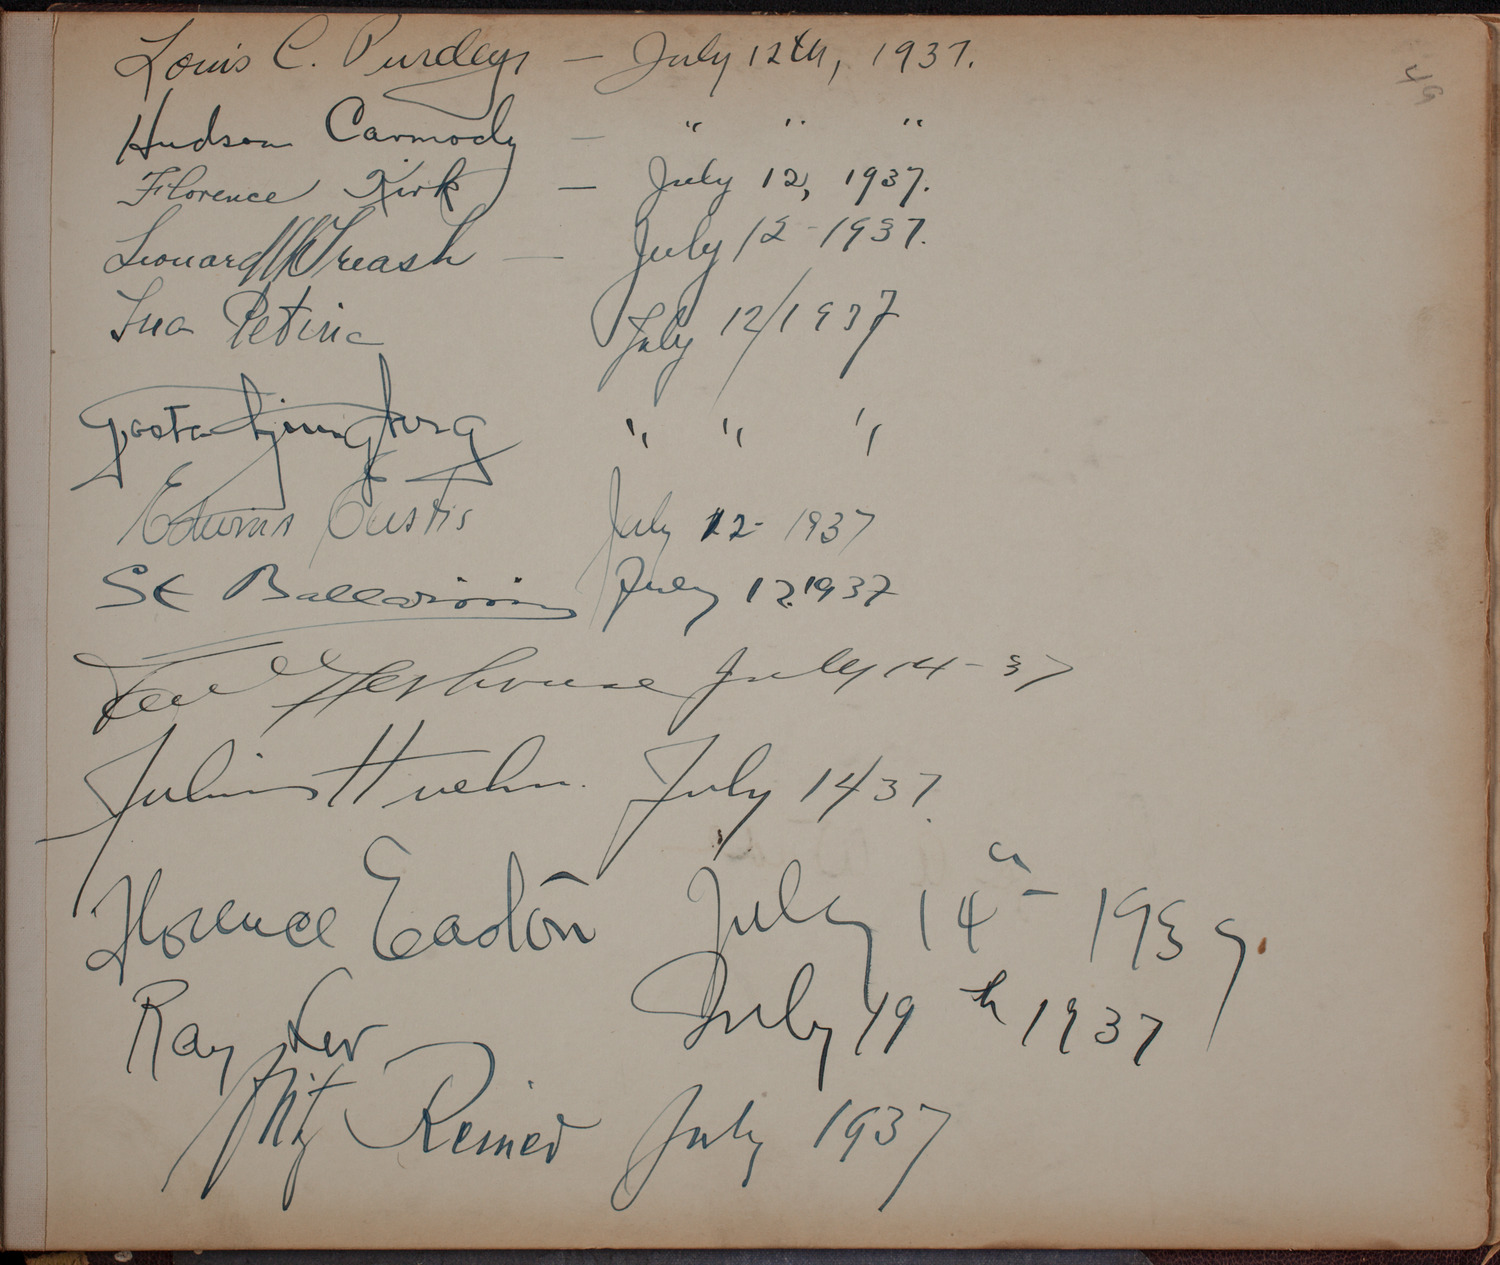 Louis C. Purdey — July 12th, 1937.
49
Hudson Carmody — " " "
Florence Kirk — July 12, 1937.
Leonard Treash — July 12-1937.
Ina Petina July 12/1937
Gosta Ljungberg " " "
Edwina Eustis July 12- 1937
St Ballarini July 12.1937
July 14-37
Julius Huehn. July 14/37.
Florence Easton July 14th- 1937.
Ray Lev July 19th 1937
Fritz Reiner July 1937